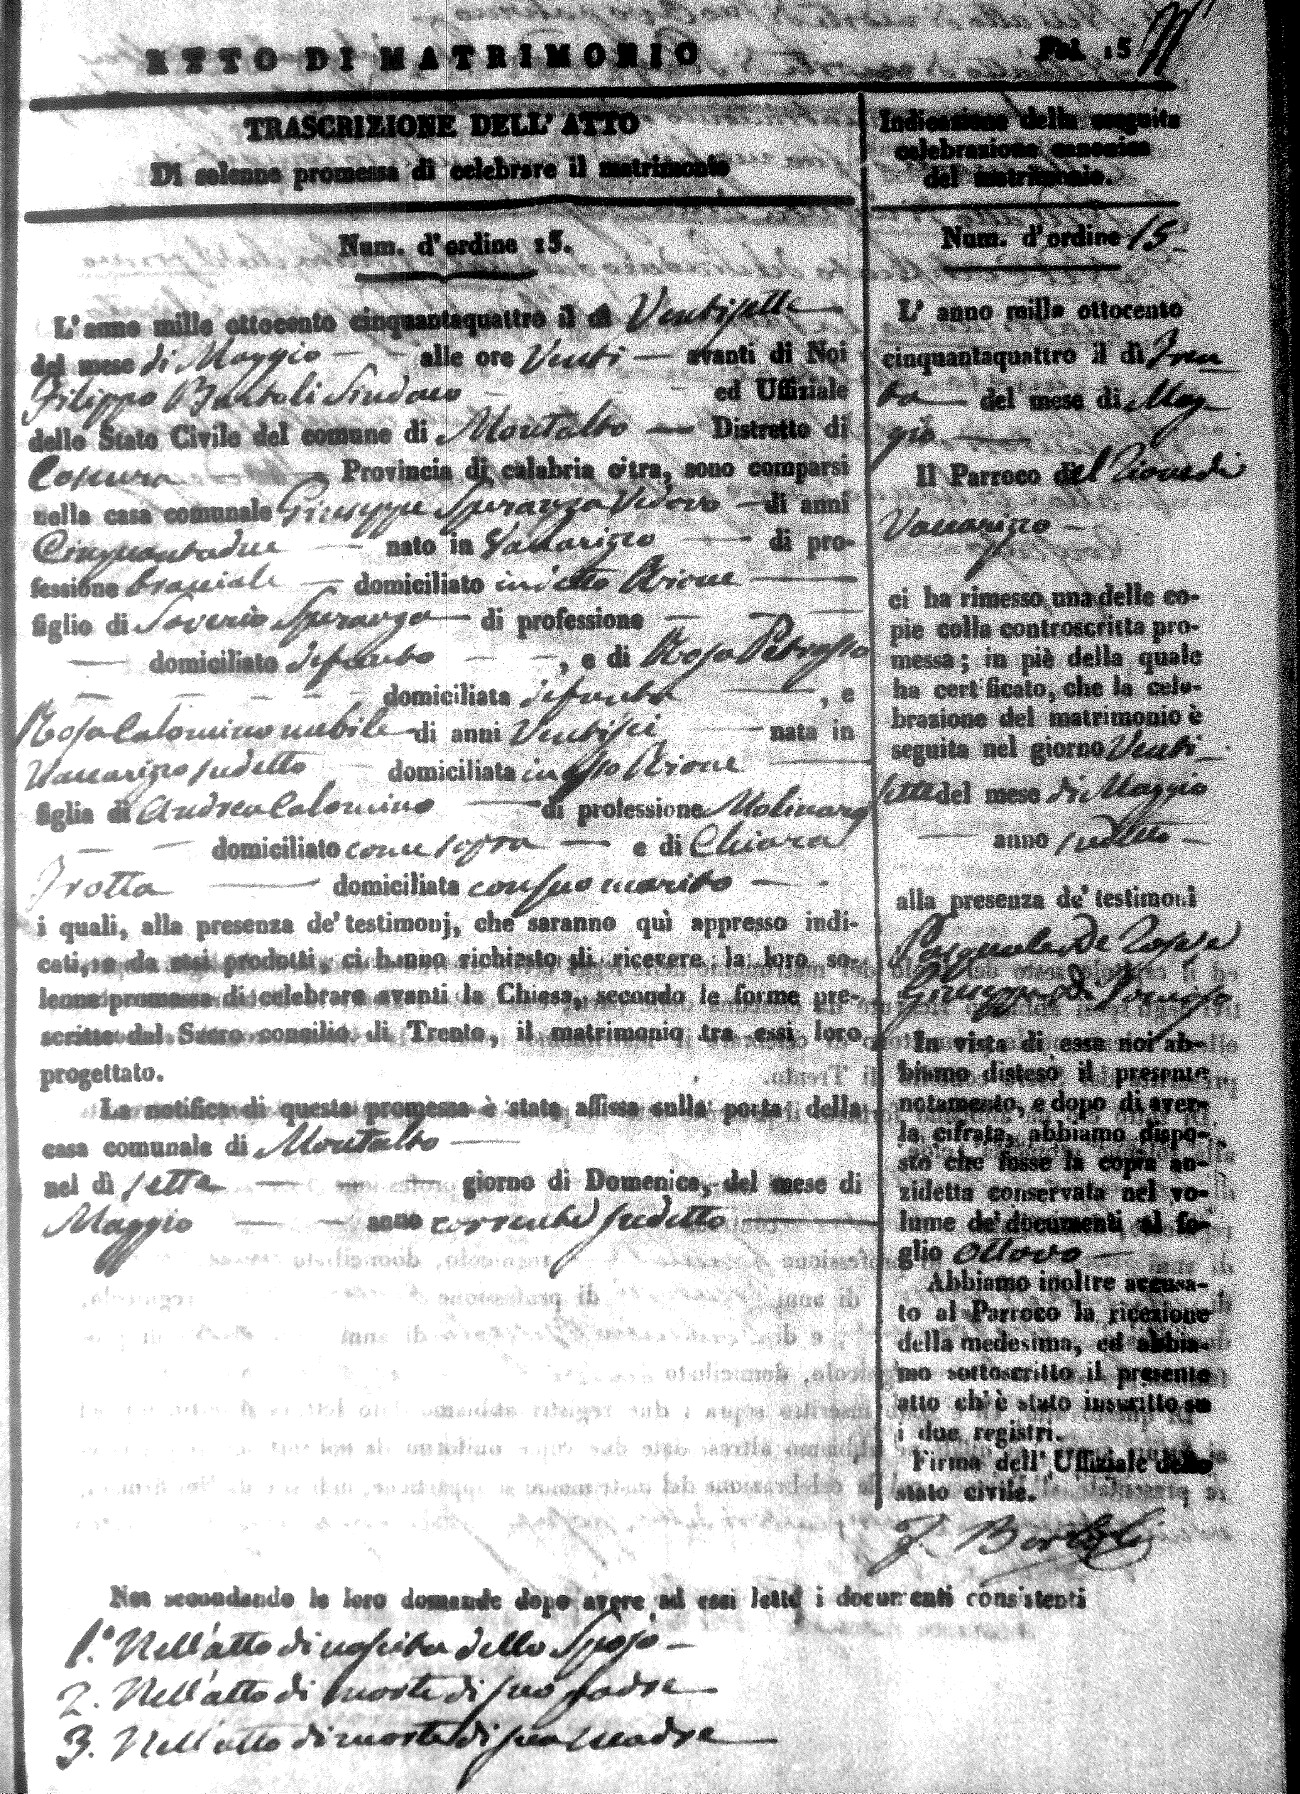 ATTO DI MATRIMONIO
Fol. 15
TRASCRIZIONE DELL' ATTO
Di solenne promessa di celebrare il matrimonio
Num. d'ordine 15.
L'anno mille ottocento cinquantaquattro il dì Ventisette
del mese di Maggio alle ore Venti avanti di Noi
Filippo Bartoli Sindaco ed Uffiziale
dello Stato Civile del comune di Montalto Distretto di
Cosenza Provincia di calabria citra, sono comparsi
nella casa comunale Giuseppe Speranza Vedovo di anni
Cinquantadue nato in Vaccarizzo di pro-
fessione bracciale domiciliato in detto Rione
figlio di Saverio Speranza di professione
domiciliato defunto, e di Rosa Petrasso
domiciliata defunta, e
Rosa Calomino nubile di anni Ventisei nata in
Vaccarizzo sudetto domiciliata in esso Rione
figlia di Andrea Calomino di professione Molinaro
domiciliato come sopra e di Chiara
Trotta domiciliata con suo marito
i quali, alla presenza de' testimonj, che saranno quì appresso indi-
cati, e da essi prodotti, ci hanno richiesto di ricevere la loro so-
lenne promessa di celebrare avanti la Chiesa, secondo le forme pre-
scritte dal Sacro consilio di Trento, il matrimonio tra essi loro
progettato.
La notifica di questa promessa è stata affissa sulla porta della
casa comunale di Montalto
nel dì sette giorno di Domenica, del mese di
Maggio anno corrente sudetto
Indicazione della seguita
celebrazione canonica
del matrimonio.
Num. d'ordine 15
L' anno mille ottocento
cinquantaquattro il dì Tren
ta del mese di Mag
gio
Il Parroco del
Vaccarizzo
ci ha rimesso una delle co-
pie colla controscritta pro-
messa; in piè della quale
ha certificato, che la cele-
brazione del matrimonio è
seguita nel giorno Venti
sette del mese di Maggio
anno sudetto
alla presenza de' testimoni
Pasquale De Rose e
Giuseppe di
In vista di essa noi ab-
biamo disteso il presente
notamento, e dopo di aver-
la cifrata, abbiamo dispo-
sto che fosse la copia an-
zidetta conservata nel vo-
lume de' documenti al fo-
glio ottavo
Abbiamo inoltre accusa-
to al Parroco la ricezione
della medesima, ed abbia-
mo sottoscritto il presente
atto ch' è stato inscritto su
i due registri.
Firma dell' Uffiziale dello
stato civile.
F. Bartoli
Noi secondando le loro domande dopo avere ad essi letto i documenti consistenti
1.° Nell'atto di nascita dello Sposo
2. Nell'atto di morte di suo padre
3. Nell'atto di morte di sua madre